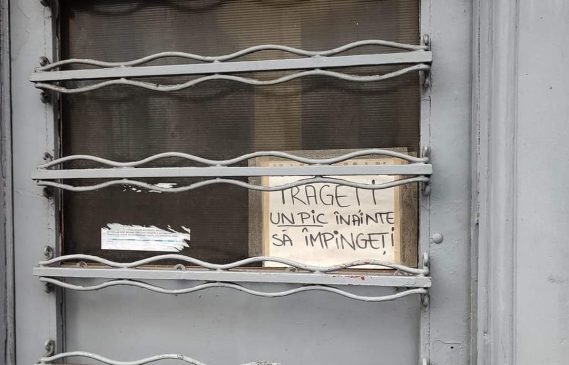 TRAGEȚI
UN PIC ÎNAINTE
SĂ ÎMPINGEȚI